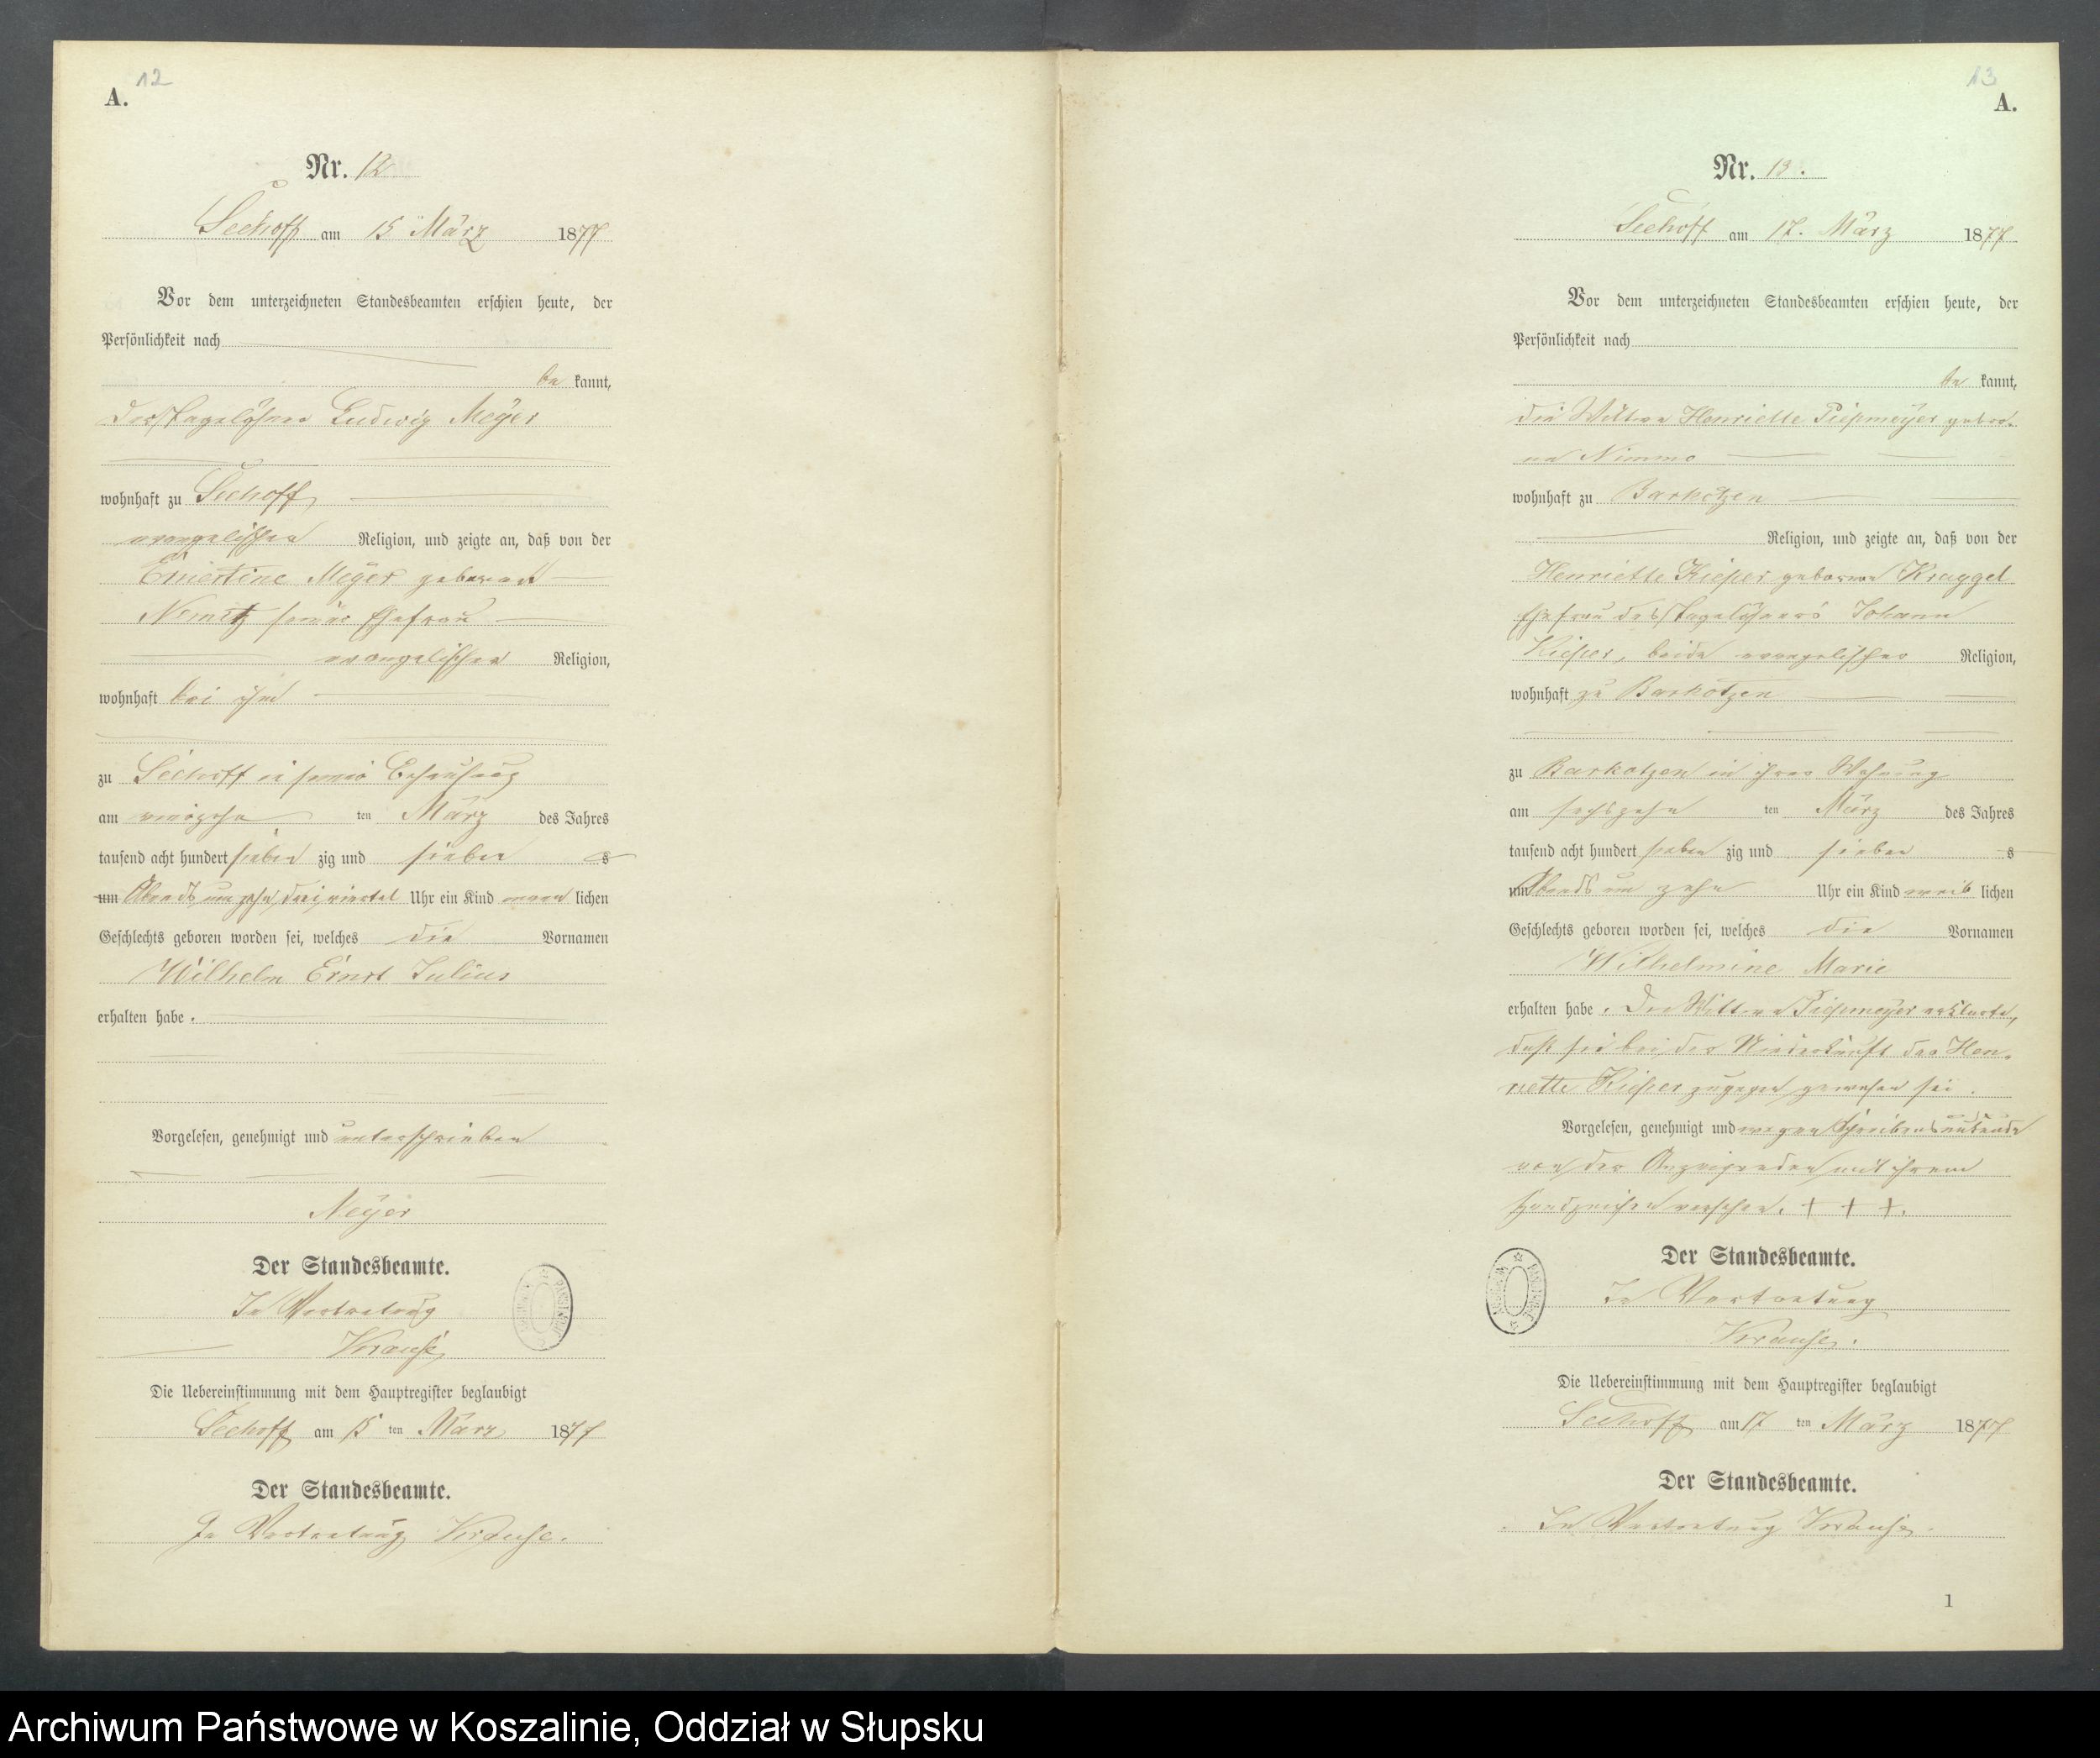 12
A.
Nr. 12
Seehoff am 15 März 1877
Vor dem unterzeichneten Standesbeamten erschien heute, der
Persönlichkeit nach
be kannt,
der Tagelöhner Ludwig Meyer
wohnhaft zu Seehoff
evangelischen Religion, und zeigte an, daß von der
Ernestine Meyer geborene
Nemitz seiner Ehefrau
evangelischer Religion,
wohnhaft bei ihm
zu Seehoff in seiner Behausung
am vierzehn ten März des Jahres
tausend acht hundert sieben zig und sieben s
um Abends um zehn drei viertel Uhr ein Kind männ lichen
Geschlechts geboren worden sei, welches die Vornamen
Wilhelm Ernst Julius
erhalten habe.
Vorgelesen, genehmigt und unterschrieben
Meyer
Der Standesbeamte.
In Vertretung
Krause
Die Uebereinstimmung mit dem Hauptregister beglaubigt
Seehoff am 15 ten März 1877
Der Standesbeamte.
In Vertretung Krause.
13
A.
Nr. 13.
Seehoff am 17. März 1877
Vor dem unterzeichneten Standesbeamten erschien heute, der
Persönlichkeit nach
be kannt,
die Wittwe Henriette Piepmeyer gebor.
ne Nimmo
wohnhaft zu Barkotzen
Religion, und zeigte an, daß von der
Henriette Kieper geborne Kraggel
Ehefrau des Tagelöhners Johann
Kieper, beide evangelischer Religion,
wohnhaft zu Barkotzen
zu Barkotzen in ihrer Wohnung
am sechszehn ten März des Jahres
tausend acht hundert sieben zig und sieben s
um Abends um zehn Uhr ein Kind weib lichen
Geschlechts geboren worden sei, welches die Vornamen
Wilhelmine Marie
erhalten habe. Die Wittwe Piepmeyer erklärte,
daß sie bei der Niederkunft der Hen-
riette Kieper zugegen gewesen sei.
Vorgelesen, genehmigt und wegen Schreibensunkunde
von der Anzeigenden mit ihrem
Handzeichen versehen. + + +.
Der Standesbeamte.
In Vertretung
Krause.
Die Uebereinstimmung mit dem Hauptregister beglaubigt
Seehoff am 17 ten März 1877
Der Standesbeamte.
In Vertretung Krause.
1
Archiwum Państwowe w Koszalinie, Oddział w Słupsku